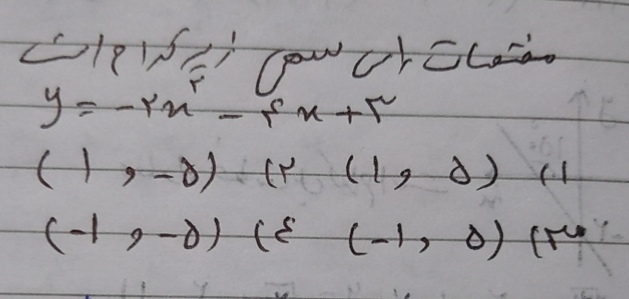 مختصات راس سهمی زیر کدام است
y = -۲x^۲ - ۴x + ۳
۱) (۱ , ۵)   ۲) (۱ , -۵)
۳) (-۱ , ۵)   ۴) (-۱ , -۵)